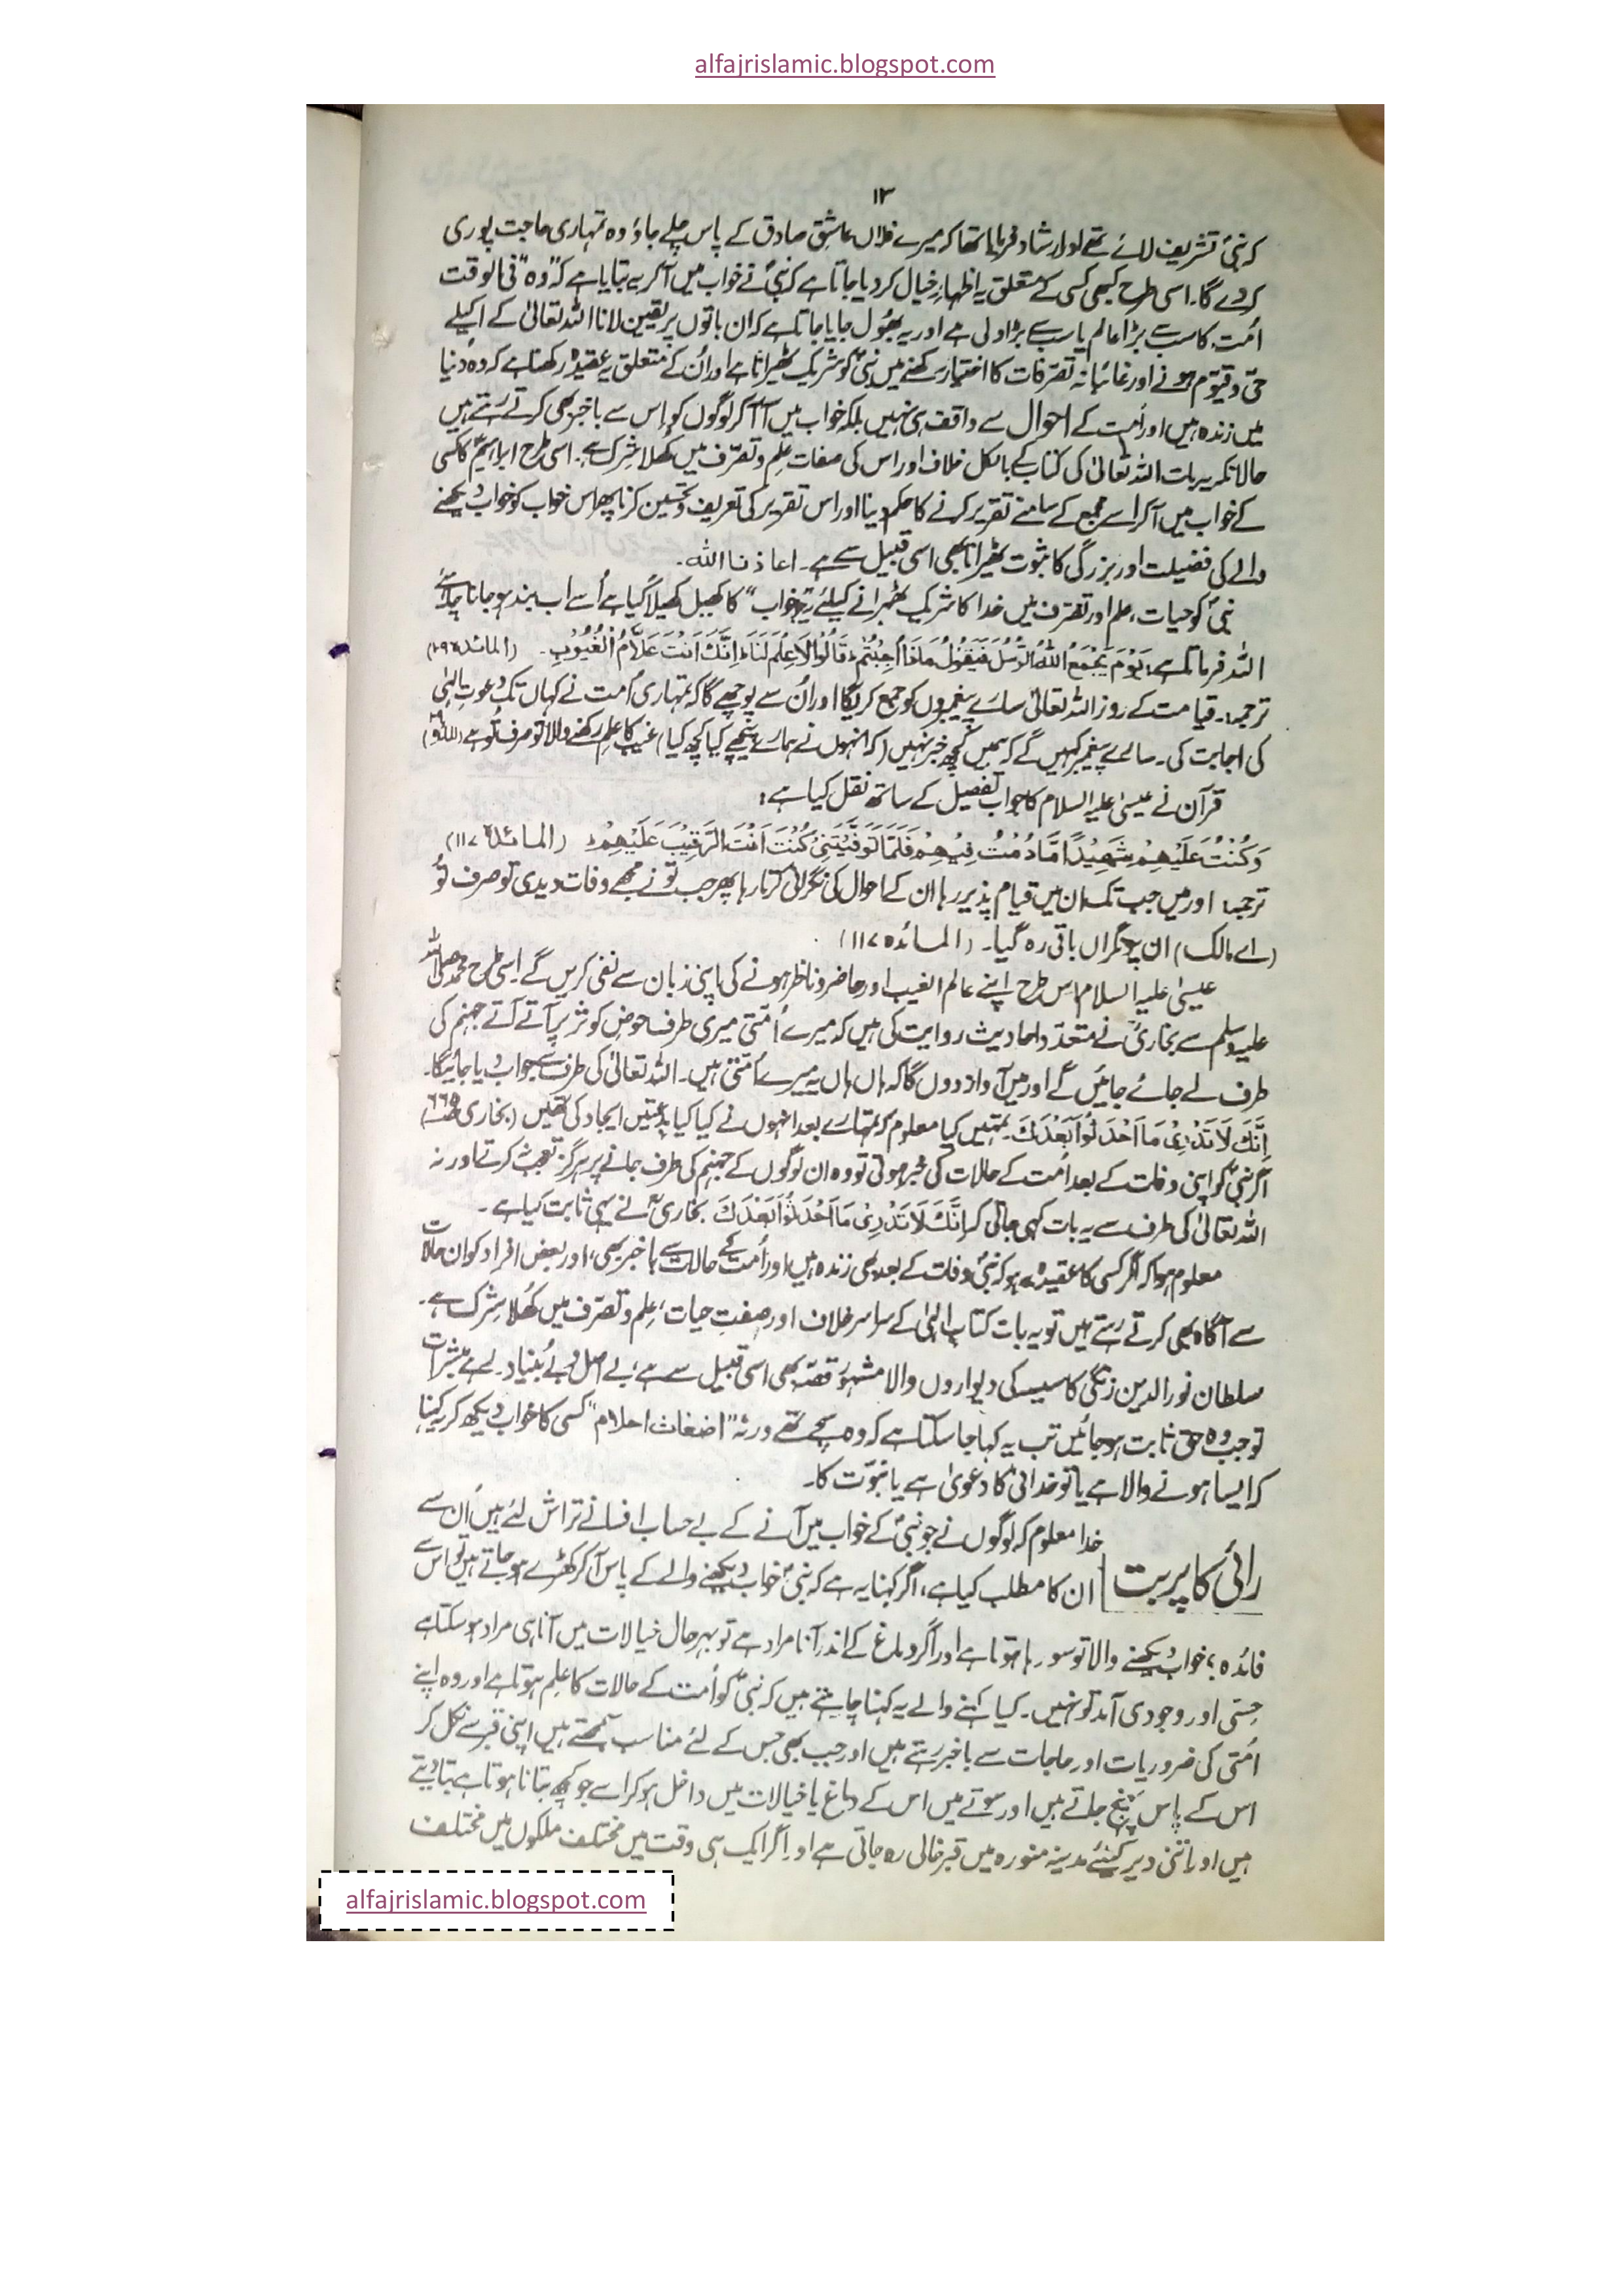 alfajrislamic.blogspot.com
۱۳
کہ نبیؐ تشریف لائے تھے اور ارشاد فرمایا تھا کہ میرے فلاں عاشق صادق کے پاس چلے جاؤ وہ تمہاری حاجت پوری
کردے گا۔ اسی طرح کبھی کسی کے متعلق یہ اظہارِ خیال کر دیا جاتا ہے کہ نبیؐ نے خواب میں آکر یہ بتایا ہے کہ "وہ" فی الوقت
اُمت کا سب سے بڑا عالم یا سب سے بڑا ولی ہے اور یہ بھُول جایا جاتا ہے کہ ان باتوں پر یقین لانا اللہ تعالیٰ کے اکیلے
حیّ و قیّوم ہونے اور غائبانہ تصّرفات کا اختیار رکھنے میں نبیؐ کو شریک ٹھیرانا ہے اور اُن کے متعلق یہ عقیدہ رکھنا ہے کہ وہ دنیا
میں زندہ ہیں اور اُمت کے احوال سے واقف ہی نہیں بلکہ خواب میں آ آ کر لوگوں کو اِس سے باخبر بھی کرتے رہتے ہیں
حالانکہ یہ بات اللہ تعالیٰ کی کتاب کے بالکل خلاف اور اس کی صفات علم و تصرّف میں کُھلا شرک ہے۔ اسی طرح ابراہیمؑ کا کسی
کے خواب میں آکر اسے مجمع کے سامنے تقریر کرنے کا حکم دینا اور اس تقریر کی تعریف و تحسین کرنا پھر اس خواب کو خواب دیکھنے
والے کی فضیلت اور بزرگی کا ثبوت ٹھیرانا بھی اسی قبیل سے ہے۔ اعاذنا اللہ۔
نبیؐ کو حیات، علم اور تصرّف میں خدا کا شریک ٹھہرانے کیلئے یہ جو "خواب" کا کھیل کھیلا گیا ہے اُسے اب بند ہو جانا چاہئے
اللہ فرماتا ہے: یَوْمَ یَجْمَعُ اللّٰہُ الرُّسُلَ فَیَقُوْلُ مَاذَا اُجِبْتُمْ ؕ قَالُوْا لَا عِلْمَ لَنَا ؕ اِنَّکَ اَنْتَ عَلَّامُ الْغُیُوْبِ۔ (المائدہ ۱۰۹)
ترجمہ:۔ قیامت کے روز اللہ تعالیٰ سارے پیغمبروں کو جمع کریگا اور اُن سے پوچھے گا کہ تمہاری اُمت نے کہاں تک دعوت الٰہی
کی اجابت کی۔ سارے پیغمبر کہیں گے کہ ہمیں کچھ خبر نہیں (کہ انہوں نے ہمارے پیچھے کیا کچھ کیا) غیب کا علم رکھنے والا تو صرف تُو ہے
قرآن نے عیسیٰ علیہ السلام کا جواب تفصیل کے ساتھ نقل کیا ہے:
وَکُنْتُ عَلَیْہِمْ شَہِیْدًا مَّا دُمْتُ فِیْہِمْ فَلَمَّا تَوَفَّیْتَنِیْ کُنْتَ اَنْتَ الرَّقِیْبَ عَلَیْہِمْ ؕ (المائدہ ۱۱۷)
ترجمہ: اور میں جب تک ان میں قیام پذیر رہا ان کے احوال کی نگرانی کرتا رہا پھر جب تو نے مجھے وفات دیدی تو صرف تُو
(اے مالک) ان پر نگراں باقی رہ گیا۔ (المائدہ ۱۱۷)
عیسیٰ علیہ السلام اس طرح اپنے عالم الغیب اور حاضر و ناظر ہونے کی اپنی زبان سے نفی کریں گے۔ اِسی طرح محمد صلی اللہ
علیہ وسلم سے بخاریؒ نے متعدّد احادیث روایت کی ہیں کہ میرے اُمّتی میری طرف حوضِ کوثر پر آتے آتے جہنم کی
طرف لے جائے جائیں گے اور میں آواز دوں گا کہ ہاں ہاں یہ میرے اُمتی ہیں۔ اللہ تعالیٰ کی طرف سے جواب دیا جائیگا۔
اِنَّکَ لَا تَدْرِیْ مَا اَحْدَثُوْا بَعْدَکَ تمہیں کیا معلوم کہ تمہارے بعد انہوں نے کیا کیا بدعتیں ایجاد کی تھیں (بخاری ص ۶۶۵)
اگر نبیؐ کو اپنی وفات کے بعد اُمت کے حالات کی خبر ہوتی تو وہ ان لوگوں کے جہنم کی طرف جانے پر ہرگز تعجب نہ کرتے اور نہ
اللہ تعالیٰ کی طرف سے یہ بات کہی جاتی کہ اِنَّکَ لَا تَدْرِیْ مَا اَحْدَثُوْا بَعْدَکَ بخاریؒ نے یہی ثابت کیا ہے۔
معلوم ہوا کہ اگر کسی کا عقیدہ یہ ہو کہ نبیؐ وفات کے بعد بھی زندہ ہیں اور اُمت کے حالات سے باخبر بھی، اور بعض افراد کو ان حالات
سے آگاہ بھی کرتے رہتے ہیں تو یہ بات کتابِ الٰہی کے سراسر خلاف اور صِفتِ حیات، علم و تصرّف میں کُھلا شرک ہے۔
سلطان نورالدین زنگی کا سیسہ کی دیواروں والا مشہور قصّہ بھی اسی قبیل سے ہے؛ بے اصل و بے بُنیاد۔ رہے مبشرات
تو جب وہ حق ثابت ہو جائیں تب یہ کہا جا سکتا ہے کہ وہ سچے تھے ورنہ "اضغاث احلام" کسی کا خواب دیکھ کر یہ کہنا
کہ ایسا ہونے والا ہے یا تو خدائی کا دعویٰ ہے یا نبوّت کا۔
رائی کا پربت
خدا معلوم کہ لوگوں نے جو نبیؐ کے خواب میں آنے کے بے حساب افسانے تراش لئے ہیں اُن سے
ان کا مطلب کیا ہے، اگر کہنا یہ ہے کہ نبیؐ خواب دیکھنے والے کے پاس آکر کھڑے ہو جاتے ہیں تو اس سے
فائدہ؛ خواب دیکھنے والا تو سو رہا ہوتا ہے اور اگر دماغ کے اندر آنا مراد ہے تو بہرحال خیالات میں آنا ہی مراد ہو سکتا ہے
حِسّی اور وجودی آمد تو نہیں۔ کیا کہنے والے یہ کہنا چاہتے ہیں کہ نبیؐ کو اُمت کے حالات کا علم ہوتا ہے اور وہ اپنے
اُمّتی کی ضروریات اور حاجات سے باخبر رہتے ہیں اور جب بھی جس کے لئے مناسب سمجھتے ہیں اپنی قبر سے نکل کر
اس کے پاس پہنچ جاتے ہیں اور سوتے میں اس کے دماغ یا خیالات میں داخل ہو کر اسے جو کچھ بتانا ہوتا ہے بتا دیتے
ہیں اور اتنی دیر کیلئے مدینہ منورہ میں قبر خالی رہ جاتی ہے اور اگر ایک ہی وقت میں مختلف ملکوں میں مختلف
alfajrislamic.blogspot.com